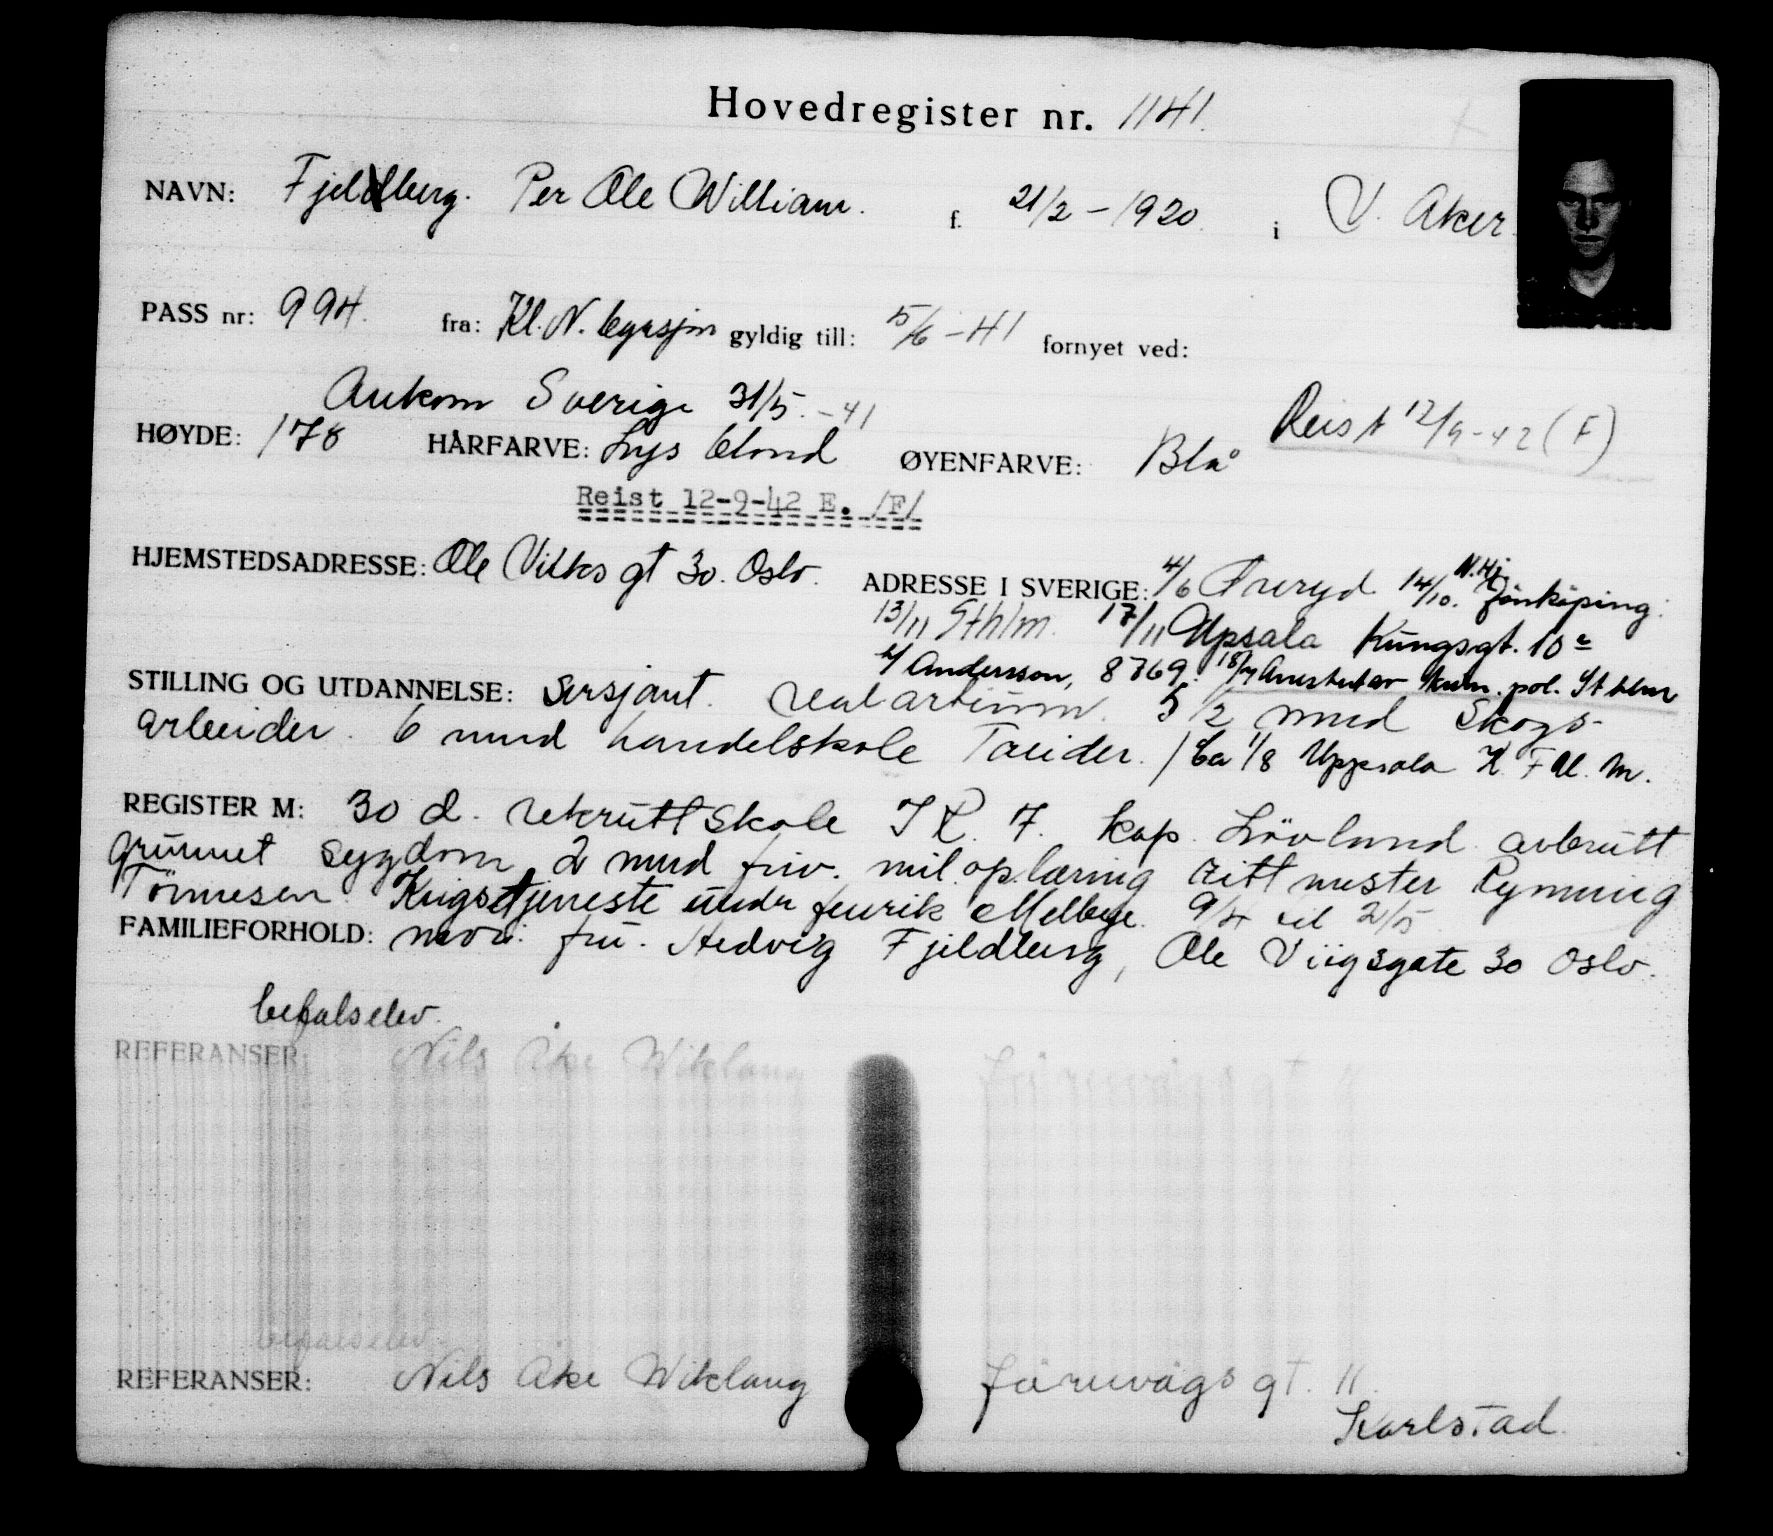 Hovedregister nr. 1141.
NAVN: Fjeldberg. Per Ole William. f. 21/2 - 1920. i V. Aker.
PASS nr: 994. fra: Kl. N. legasjon gyldig till: 5/6 - 41 fornyet ved:
Ankom Sverige 31/5. - 41
Reist 12/9 - 42 (F)
HØYDE: 178 HÅRFARVE: Lys blond ØYENFARVE: Blå
Reist 12-9-42 E. /F/
HJEMSTEDSADRESSE: Ole Viiks gt 30. Oslo. ADRESSE I SVERIGE: 4/6 Øreryd 14/10. N.Hj. Jönköping.
13/11 Sthlm. 17/11 Upsala Kungsgt. 10
c/ Andersson, 8769. 18/7 av krim. pol. Sthlm
STILLING OG UTDANNELSE: Sersjant. realartium. 5 1/2 mnd Skogs-
arbeider. 6 mnd handelskole Treider. / ca 1/8 Uppsala K.F.U.M.
REGISTER M: 30 d. rekruttskole I R. 7. kap. Lövlund avbrutt
grunnet sygdom 2 mnd friv. mil. oplæring rittmester Rynning
Tönnesen. Krigstjeneste under fenrik Melbye. 9/4 til 2/5
FAMILIEFORHOLD: mor: fru. Hedvig Fjeldberg, Ole Viigsgate 30 Oslo.
befalselev.
REFERANSER: Nils Åke Wiklang
befalselev.
REFERANSER: Nils Åke Wiklang gt. 11.
Karlstad